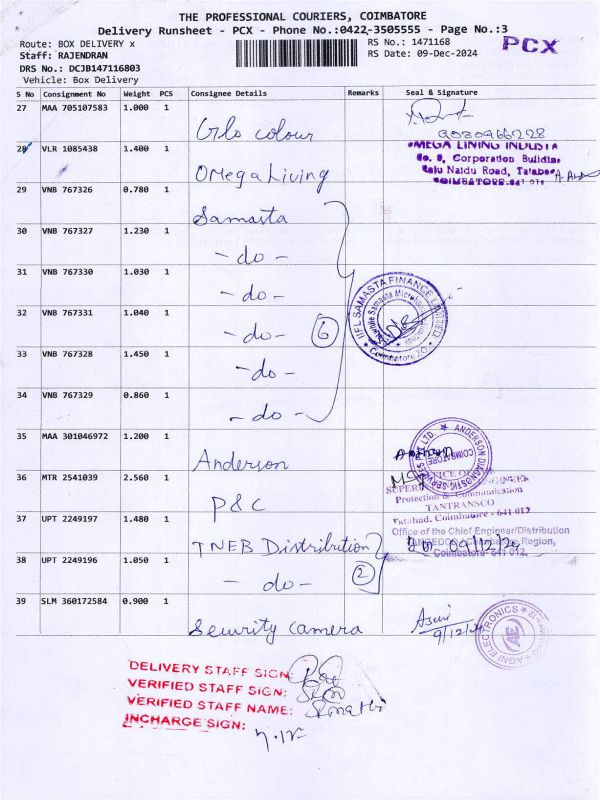 THE PROFESSIONAL COURIERS, COIMBATORE
Delivery Runsheet - PCX - Phone No.:0422-3505555 - Page No.:3
Route: BOX DELIVERY x
RS No.: 1471168
PCX
Staff: RAJENDRAN
RS Date: 09-Dec-2024
DRS No.: DCJB147116803
Vehicle: Box Delivery
S No Consignment No Weight PCS Consignee Details Remarks Seal & Signature
27 MAA 705107583 1.000 1
Glo colour
9080966228
28 VLR 1085438 1.400 1
OMega Living
OMEGA LINING INDUSTR
No. 5, Corporation Building
Naidu Road, Tatabad
COIMBATORE-641 012
29 VNB 767326 0.780 1
Samasta
30 VNB 767327 1.230 1
- do -
31 VNB 767330 1.030 1
- do -
32 VNB 767331 1.040 1
- do - 6
IIFL SAMASTA FINANCE LIMITED
Coimbatore ZO
33 VNB 767328 1.450 1
- do -
34 VNB 767329 0.860 1
- do -
35 MAA 301046972 1.200 1
Anderson
ANDERSON DIAGNOSTIC SERVICES PVT LTD.
COIMBATORE
36 MTR 2541039 2.560 1
P & C
OFFICE OF
ENGINEER
Protection & Communication
TANTRANSCO
Tatabad, Coimbatore - 641 012
37 UPT 2249197 1.480 1
TNEB Distribution
Office of the Chief Engineer/Distribution
Region,
Coimbatore 641 012.
38 UPT 2249196 1.050 1
- do - 2
39 SLM 360172584 0.900 1
Security camera
9/12/24
AGNI ELECTRONICS
DELIVERY STAFF SIGN:
VERIFIED STAFF SIGN:
VERIFIED STAFF NAME:
INCHARGE SIGN: